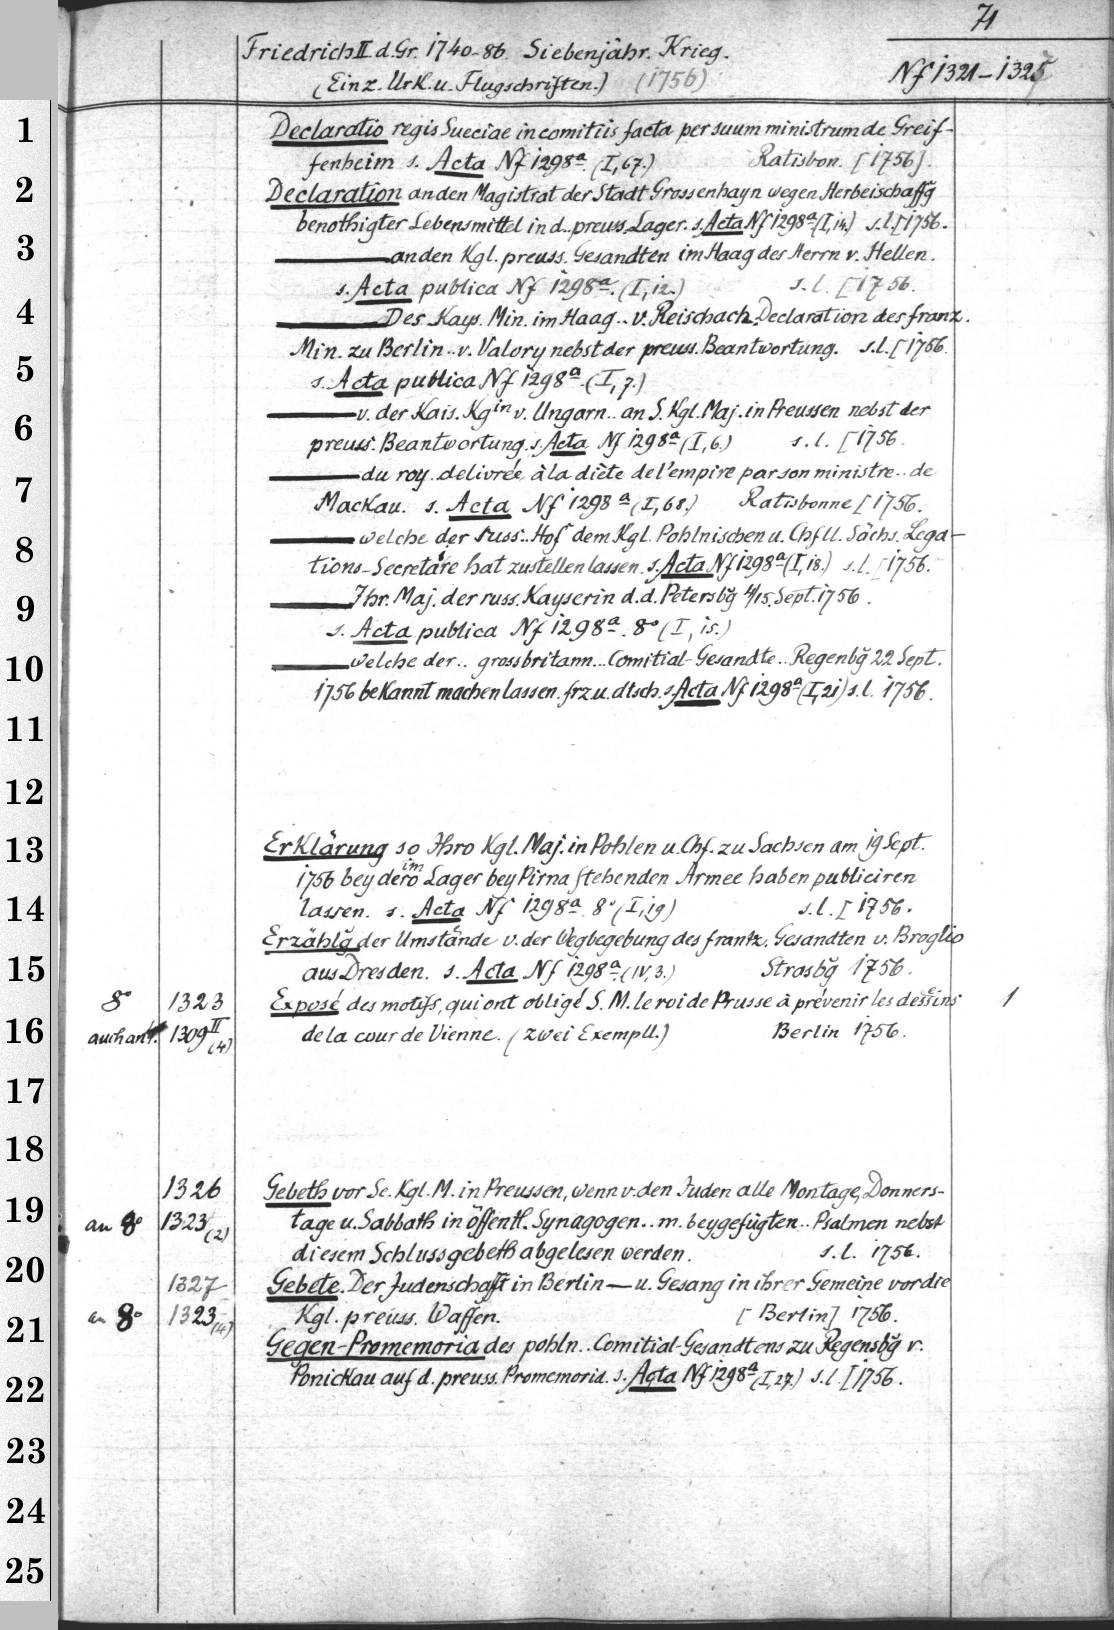 71
Friedrich II. d. Gr. 1740-86. Siebenjähr. Krieg.
(Einz. Urk. u. Flugschriften.) (1756)
Nf 1321-1325
1
Declaratio regis Sueciae in comitiis facta per suum ministrum de Greif-
fenheim s. Acta Nf 1298a. (I,67.) Ratisbon. [1756].
2
Declaration an den Magistrat der Stadt Grossenhayn wegen Herbeischaffg
benothigter Lebensmittel in d. preuss. Lager. s. Acta Nf 1298a (I,14.) s.l. [1756.
3
——— an den Kgl. preuss. Gesandten im Haag des Herrn v. Hellen.
s. Acta publica Nf 1298a. (I,12.) s.l. [1756.
4
——— Des Kays. Min. im Haag .. v. Reischach. Declaration des franz.
Min. zu Berlin .. v. Valory nebst der preuss. Beantwortung. s.l. [1756.
5
s. Acta publica Nf 1298a. (I,7.)
——— v. der Kais. Kgin v. Ungarn .. an S. Kgl. Maj. in Preussen nebst der
6
preuss. Beantwortung. s. Acta Nf 1298a (I,6.) s.l. [1756.
——— du roy .. delivrée à la diète de l'empire par son ministre .. de
7
Mackau. s. Acta Nf 1298a (I,68.) Ratisbonne [1756.
——— welche der russ.. Hof dem Kgl. Pohlnischen u. Chfll. Sächs. Lega-
8
tions-Secretäre hat zustellen lassen. s. Acta Nf 1298a (I,18.) s.l. [1756.
9
——— Ihr. Maj. der russ. Kayserin d.d. Petersbg 4/15. Sept. 1756.
s. Acta publica Nf 1298a. 8o (I,15.)
10
——— welche der .. grossbritann... Comitial-Gesandte .. Regenbg 22 Sept.
1756 bekannt machen lassen. frz. u. dtsch. s. Acta Nf 1298a (I,21) s.l. 1756.
11
12
13
Erklärung so Ihro Kgl. Maj. in Pohlen u. Chf. zu Sachsen am 19 Sept.
1756 bey dero im Lager bey Pirna stehenden Armee haben publiciren
14
lassen. s. Acta Nf 1298a. 8o (I,19) s.l. [1756.
Erzählg der Umstände v. der Wegbegebung des frantz. Gesandten v. Broglio
15
aus Dresden. s. Acta Nf 1298a (IV,3.) Strasbg 1756.
8o 1323 Exposé des motifs, qui ont obligé S. M. le roi de Prusse à prévenir les desseins 1
16
auch an 4. 1309II(4) de la cour de Vienne. (zwei Exempll.) Berlin 1756.
17
18
1326 Gebeth vor Se. Kgl. M. in Preussen, wenn v. den Juden alle Montage, Donners-
19
an 8o 1323(2) tage u. Sabbath in öffentl. Synagogen .. m. beygefügten .. Psalmen nebst
diesem Schlussgebeth abgelesen werden. s.l. 1756.
20
1327 Gebete. Der Judenschafft in Berlin — u. Gesang in ihrer Gemeine vor die
an 8o 1323(4) Kgl. preuss. Waffen. [Berlin] 1756.
21
Gegen-Promemoria des pohln .. Comitial-Gesandtens zu Regensbg v.
22
Ponickau auf d. preuss. Promemoria. s. Acta Nf 1298a (I,27.) s.l. [1756.
23
24
25